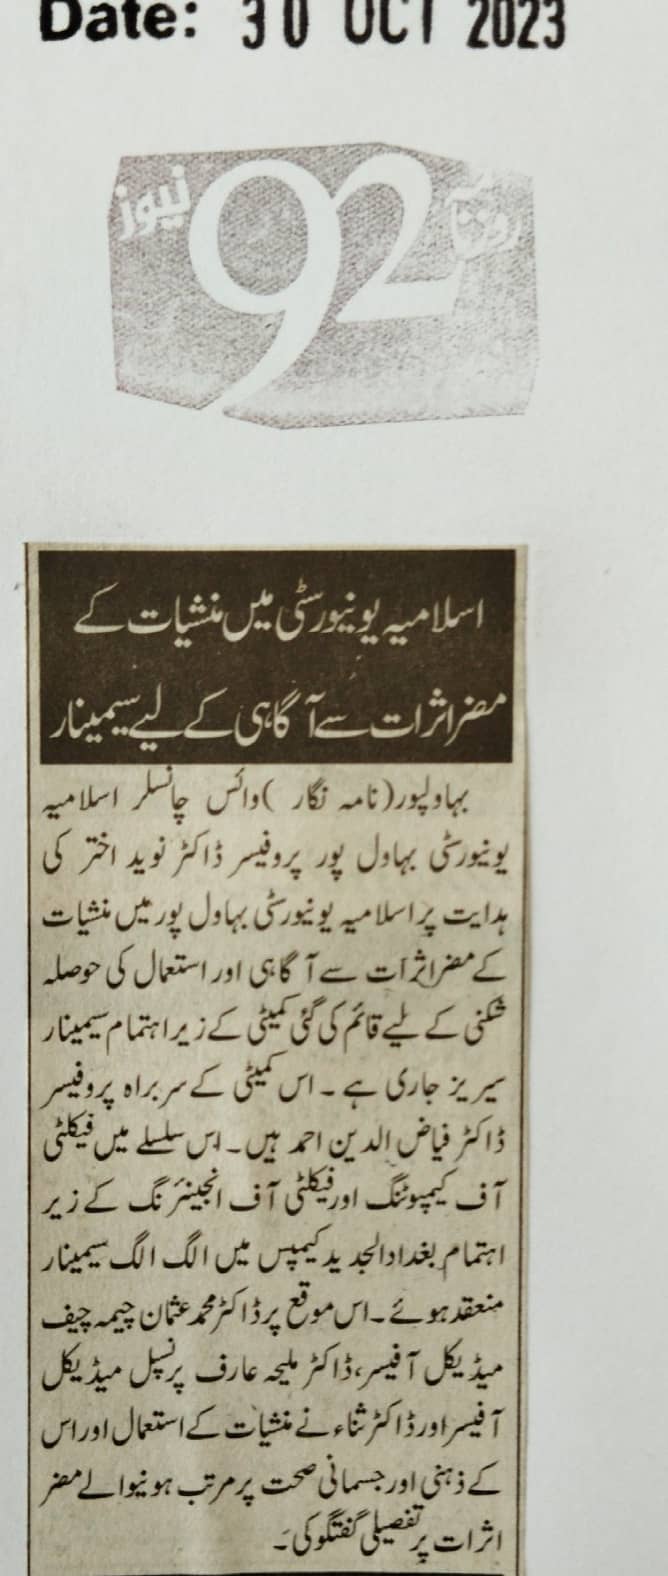 Date: 30 OCT 2023
روزنامہ 92 نیوز
اسلامیہ یونیورسٹی میں منشیات کے
مضر اثرات سے آگاہی کے لیے سیمینار
بہاولپور(نامہ نگار )وائس چانسلر اسلامیہ
یونیورسٹی بہاول پور پروفیسر ڈاکٹر نوید اختر کی
ہدایت پر اسلامیہ یونیورسٹی بہاول پور میں منشیات
کے مضر اثرات سے آگاہی اور استعمال کی حوصلہ
شکنی کے لیے قائم کی گئی کمیٹی کے زیر اہتمام سیمینار
سیریز جاری ہے ۔ اس کمیٹی کے سربراہ پروفیسر
ڈاکٹر فیاض الدین احمد ہیں۔ اس سلسلے میں فیکلٹی
آف کمپیوٹنگ اور فیکلٹی آف انجینئرنگ کے زیر
اہتمام بغداد الجدید کیمپس میں الگ الگ سیمینار
منعقد ہوئے ۔ اس موقع پر ڈاکٹر محمد عثمان چیمہ چیف
میڈیکل آفیسر، ڈاکٹر ملیحہ عارف پرنسپل میڈیکل
آفیسر اور ڈاکٹر ثناء نے منشیات کے استعمال اور اس
کے ذہنی اور جسمانی صحت پر مرتب ہونیوالے مضر
اثرات پر تفصیلی گفتگو کی۔